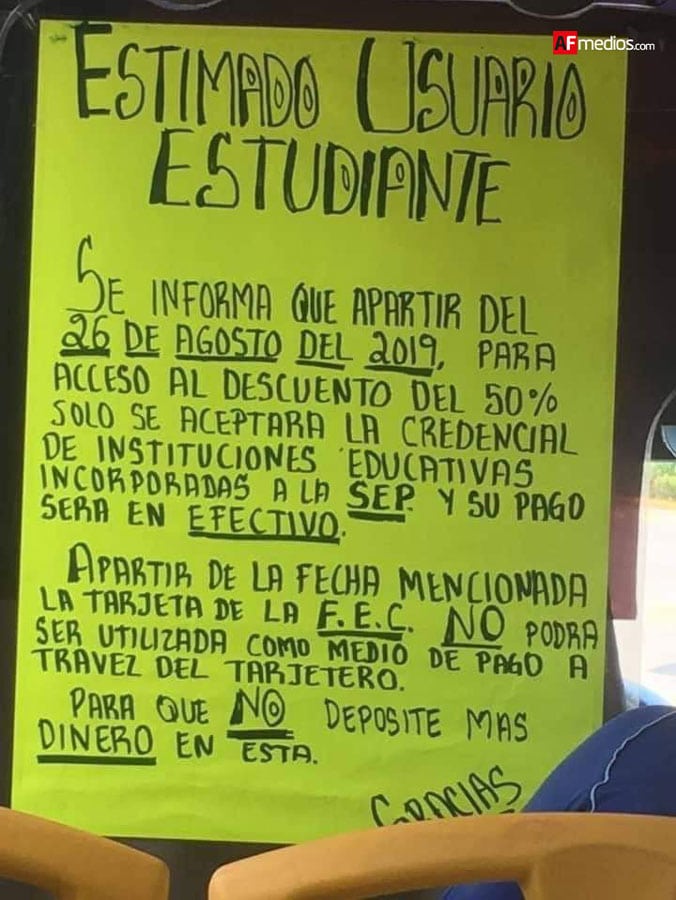 AFmedios.com
ESTIMADO USUARIO
ESTUDIANTE
SE INFORMA QUE APARTIR DEL
26 DE AGOSTO DEL 2019, PARA
ACCESO AL DESCUENTO DEL 50%
SOLO SE ACEPTARA LA CREDENCIAL
DE INSTITUCIONES EDUCATIVAS
INCORPORADAS A LA SEP. Y SU PAGO
SERA EN EFECTIVO.
APARTIR DE LA FECHA MENCIONADA
LA TARJETA DE LA F.E.C. NO PODRA
SER UTILIZADA COMO MEDIO DE PAGO A
TRAVEZ DEL TARJETERO.
PARA QUE NO DEPOSITE MAS
DINERO EN ESTA.
GRACIAS